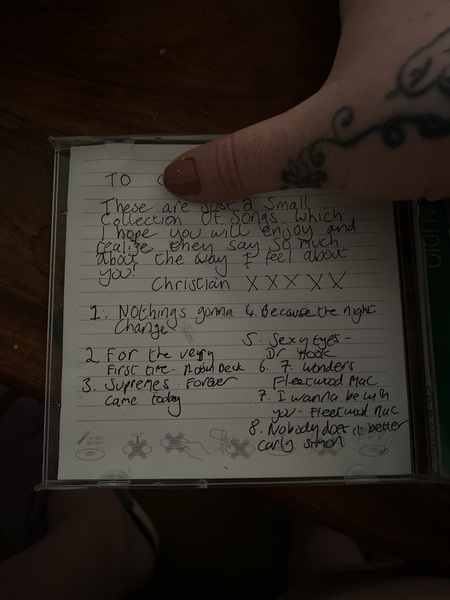 TO
These are just a Small
Collection Of Songs which
I hope you will enjoy and
realize they say so much
about the way I feel about
you!
Christian XXXXX
1. Nothings gonna
Change
2 For the very
First time - Robin Beck
3. Supremes Forever
came today
4. Because the night
5. Sexy Eyes -
Dr Hook
6. 7 wonders
Fleetwood Mac
7. I wanna be with
you - Fleetwood Mac
8. Nobody does it better
carly simon
AUDIO